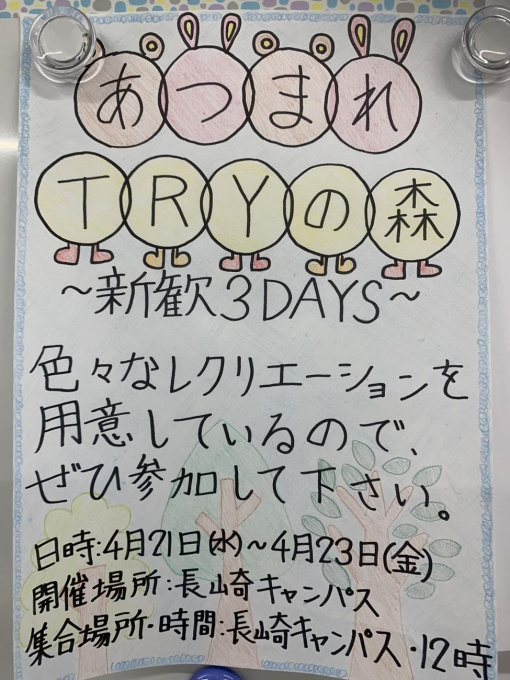 あつまれ
TRYの森
～新歓3DAYS～
色々なレクリエーションを
用意しているので、
ぜひ参加して下さい。
日時:4月21日(水)～4月23日(金)
開催場所:長崎キャンパス
集合場所・時間:長崎キャンパス・12時